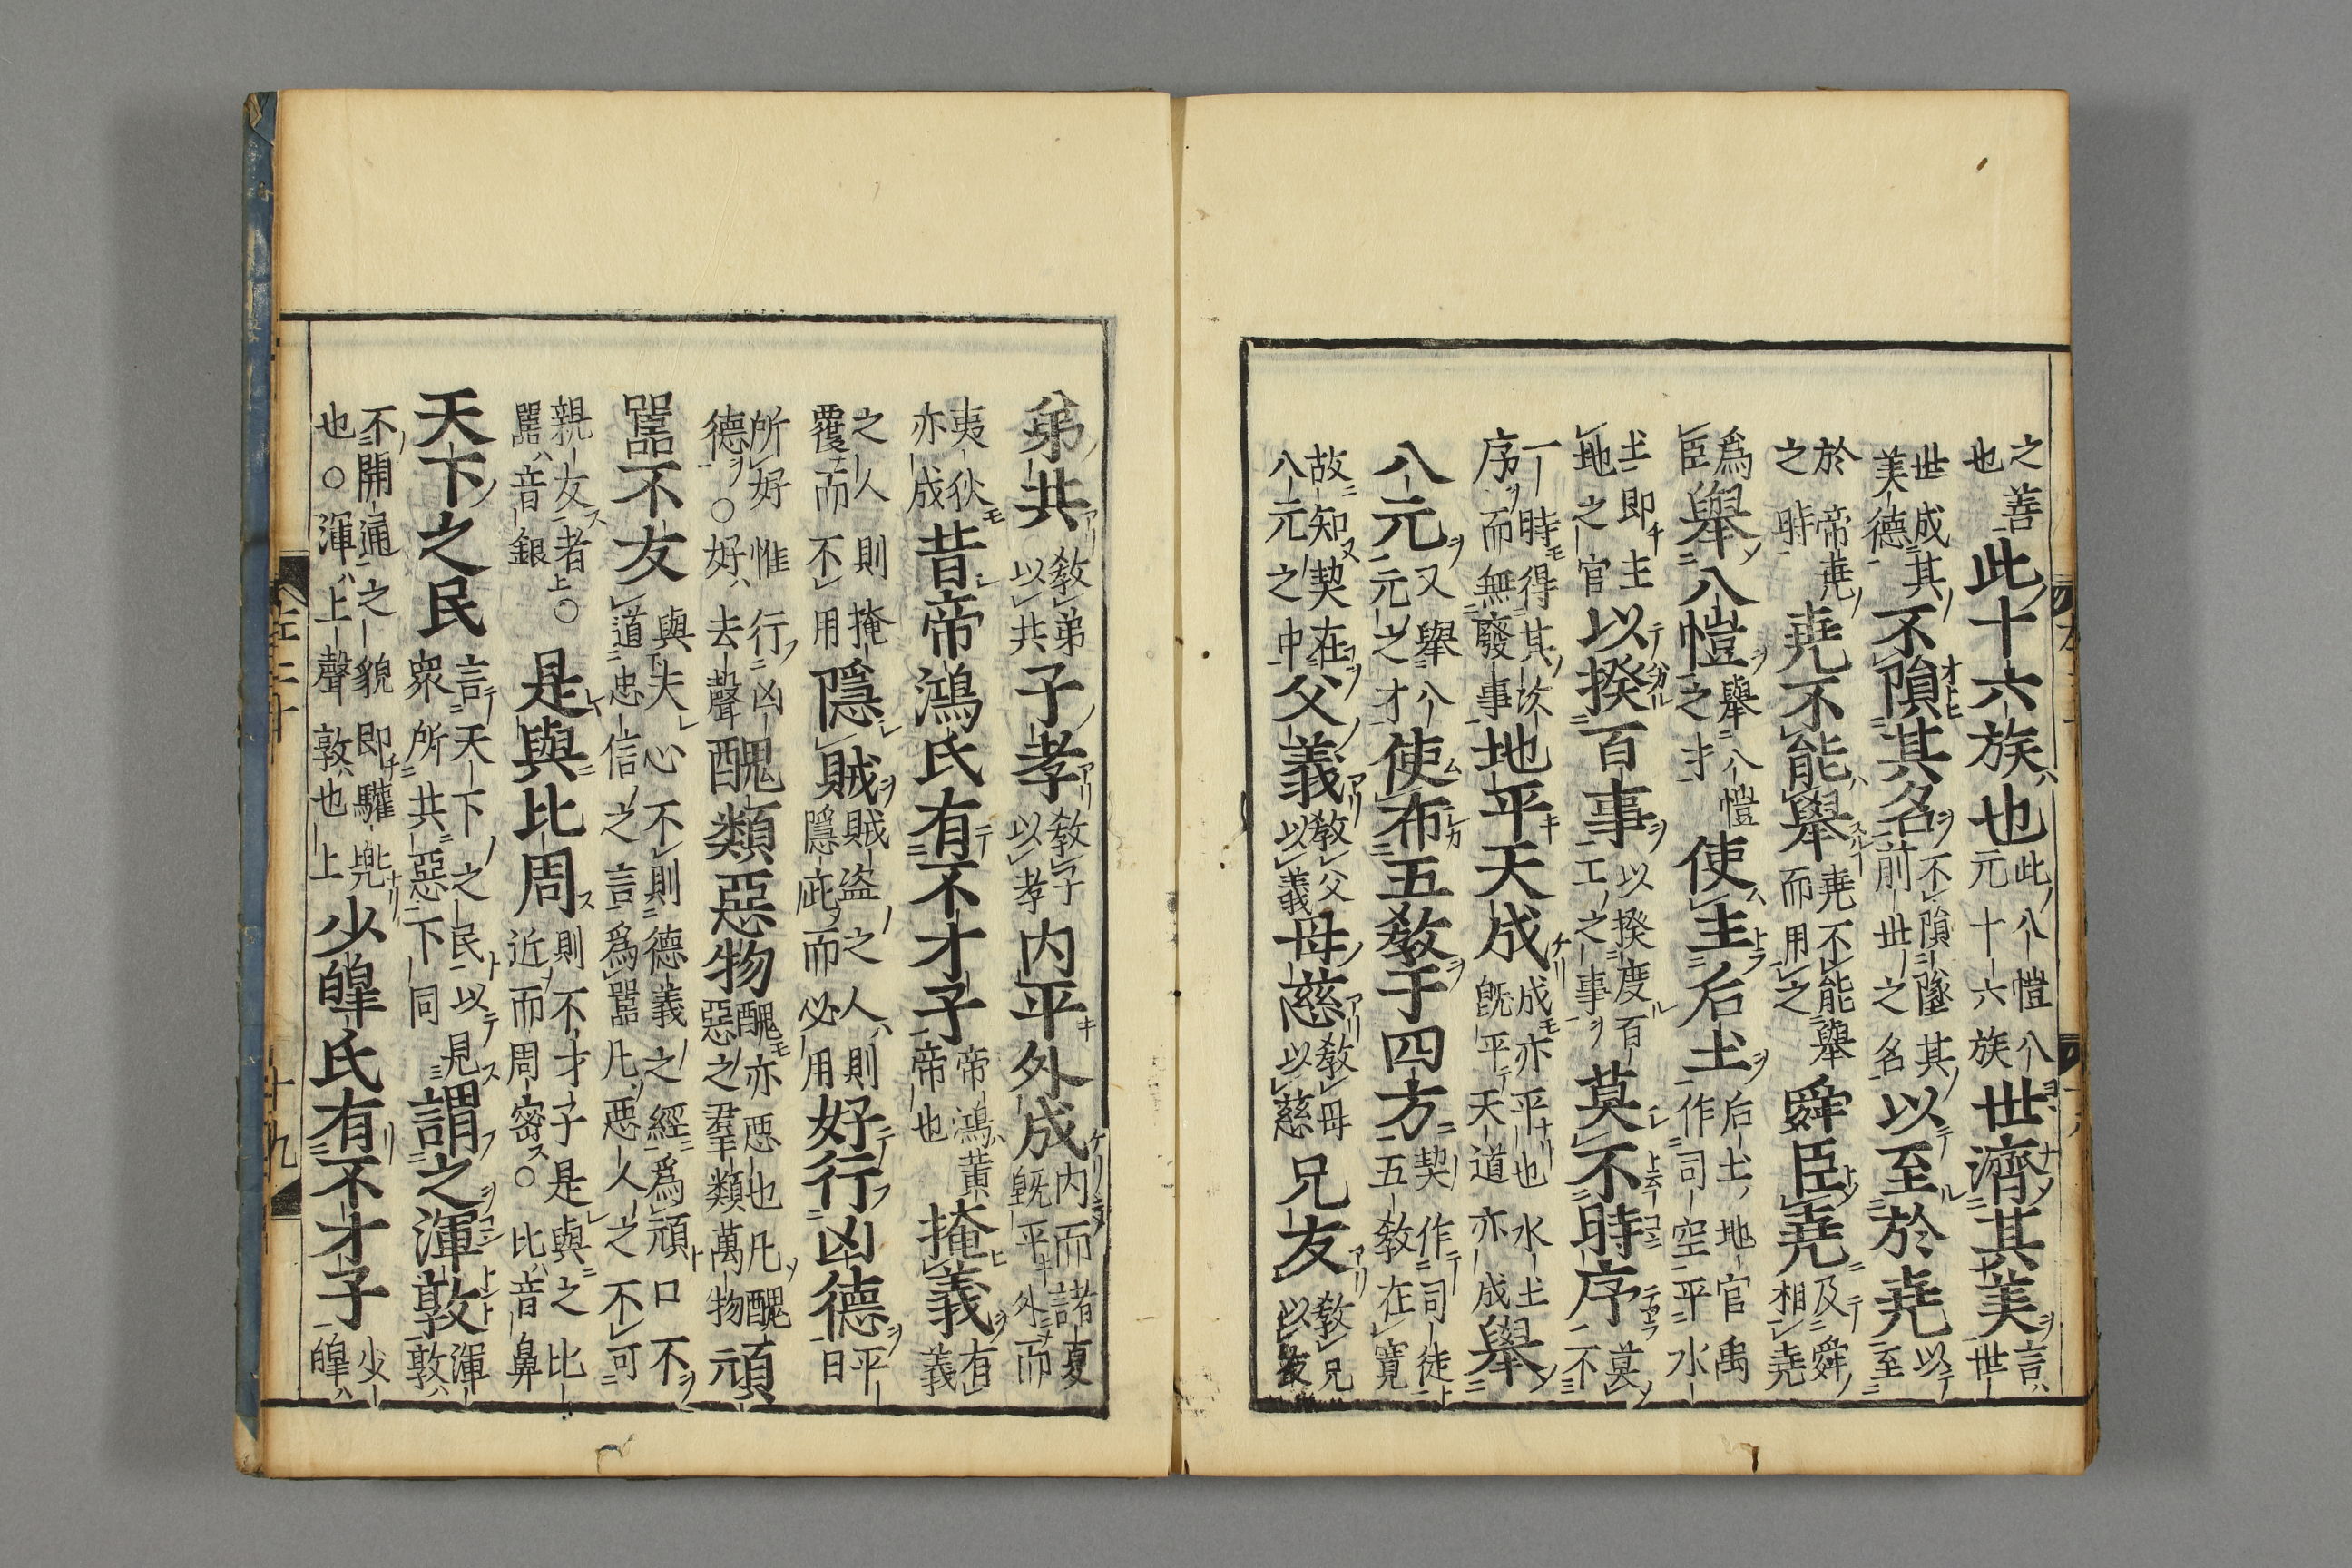 之善也此十六族也此八愷八元十六族世濟其美言世
世成其美德不隕其名不隕墜其前世之名以至於堯以至
於帝堯之時堯不能舉堯不能舉而用之舜臣堯及舜相堯
爲臣舉八愷舉八愷之才使主后土后土地官禹作司空平水
土即主地之官以揆百事以揆度百工之事莫不時序莫不
一時得其次序而無發事地平天成成亦平也水土既平天道亦成舉
八元又舉八元之才使布五敎于四方契作司徒五敎在寬
故知契在八元之中父義敎父以義母慈敎母以慈兄友敎兄以友
弟共敎弟以共子孝敎子以孝内平外成内而諸夏既平外而
夷狄亦成昔帝鴻氏有不才子帝鴻黄帝也掩義有義
之人則掩覆而不用隱賊賊盗之人則隱庇而必用好行凶德平日
所好惟行凶德○好去聲醜類惡物醜亦惡也凡醜惡之羣類萬物頑
嚚不友與夫心不則德義之經爲頑口不道忠信之言爲嚚凡惡人之不可
親友者○嚚音銀是與比周則不才子是與之比近而周密○比音鼻
天下之民言天下之民以見衆所共惡下同謂之渾敦渾敦
不開通之貌即驩兜也○渾上聲敦也上少皥氏有不才子少皥
左二十 十九